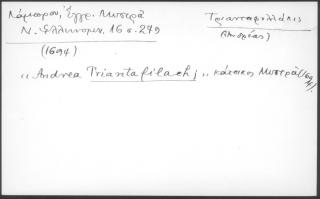 Λάμπρου, Ἔγγρ. Μυστρᾶ
Ν. Ἑλληνομν. 16 σ. 279
(1694)
Τριανταφυλλάκις
(Ἀνδρέας)
„ Andrea Triantafilachj „ κάτοικος Μυστρᾶ